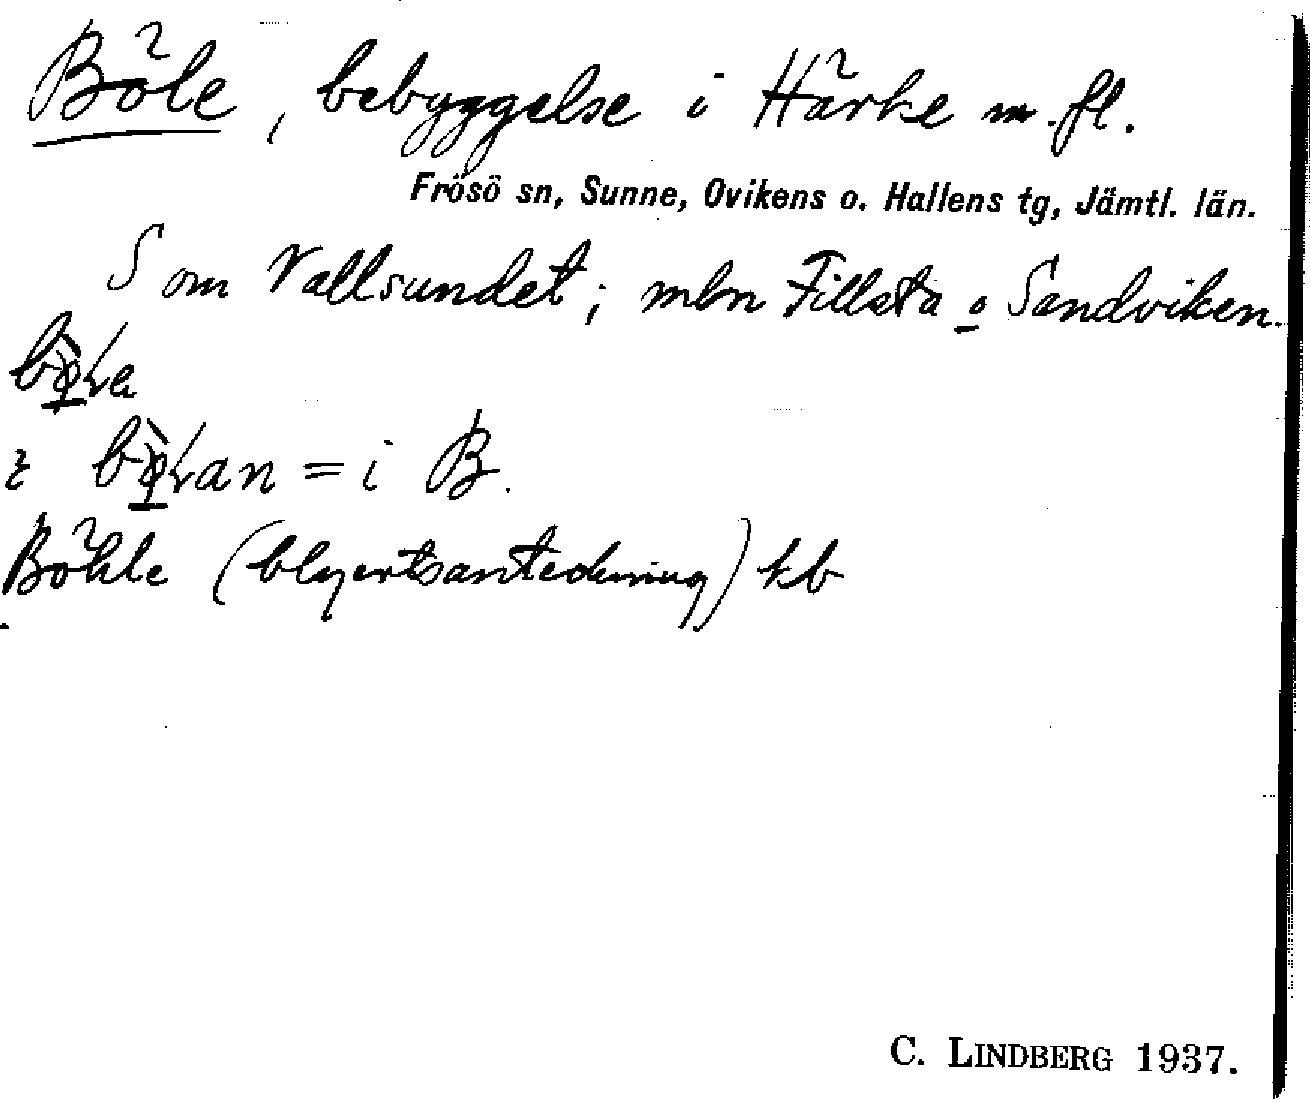 Böle, bebyggelse i Härke m.fl.
Frösö sn, Sunne, Ovikens o. Hallens tg, Jämtl. län.
S om Vallsundet; mln Fillsta o Sandviken.
= i B.
Böhle (blyertsanteckning) kb
C. LINDBERG 1937.